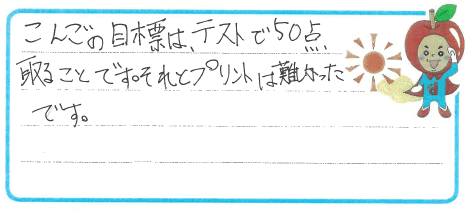 こんごの目標は、テストで50点
取ることです。それとプリントは難かった
です。